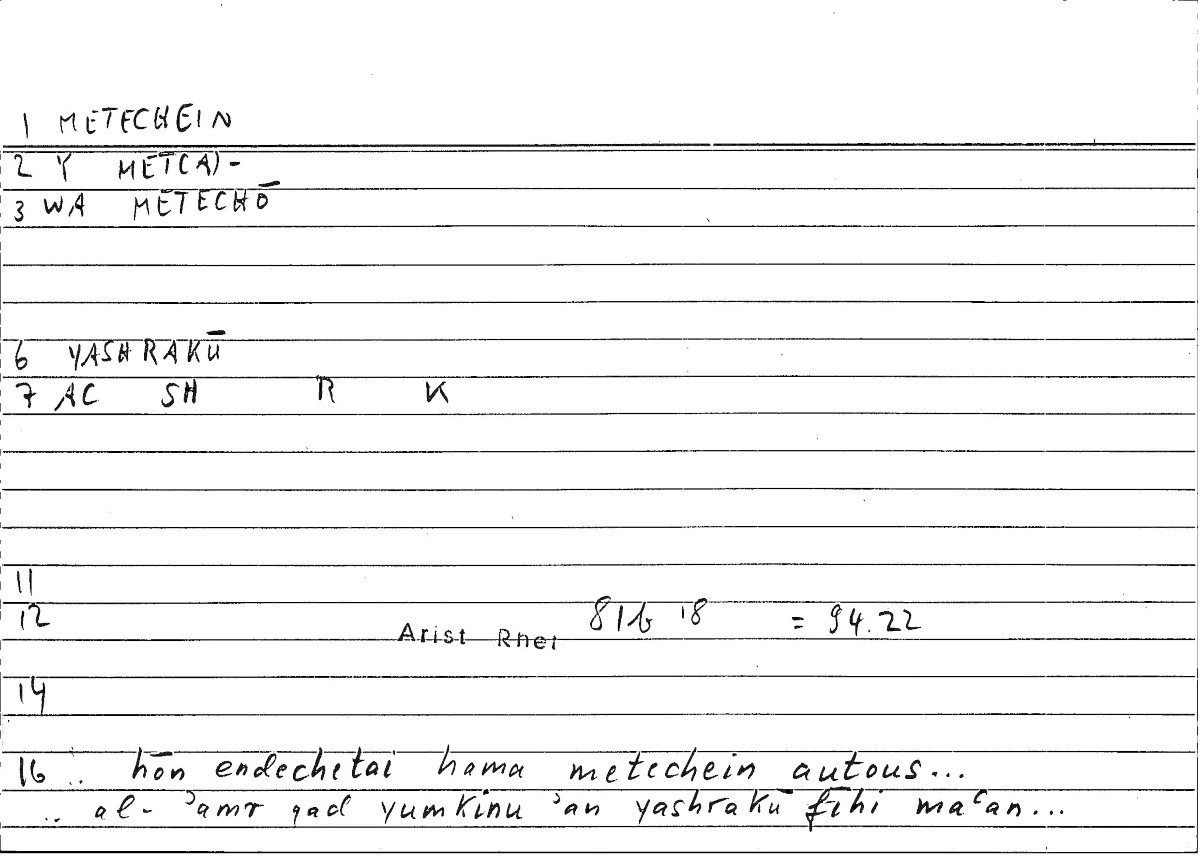 1 METECHEIN
2 Y MET(A)-
3 WA METECHŌ
6 YASHRAKŪ
7 AC SH R K
11
12 Arist Rhet 81b 18 = 94.22
14
16 .. hōn endechetai hama metechein autous...
.. al- ʾamr qad yumkinu ʾan yashrakū fīhi maʿan...